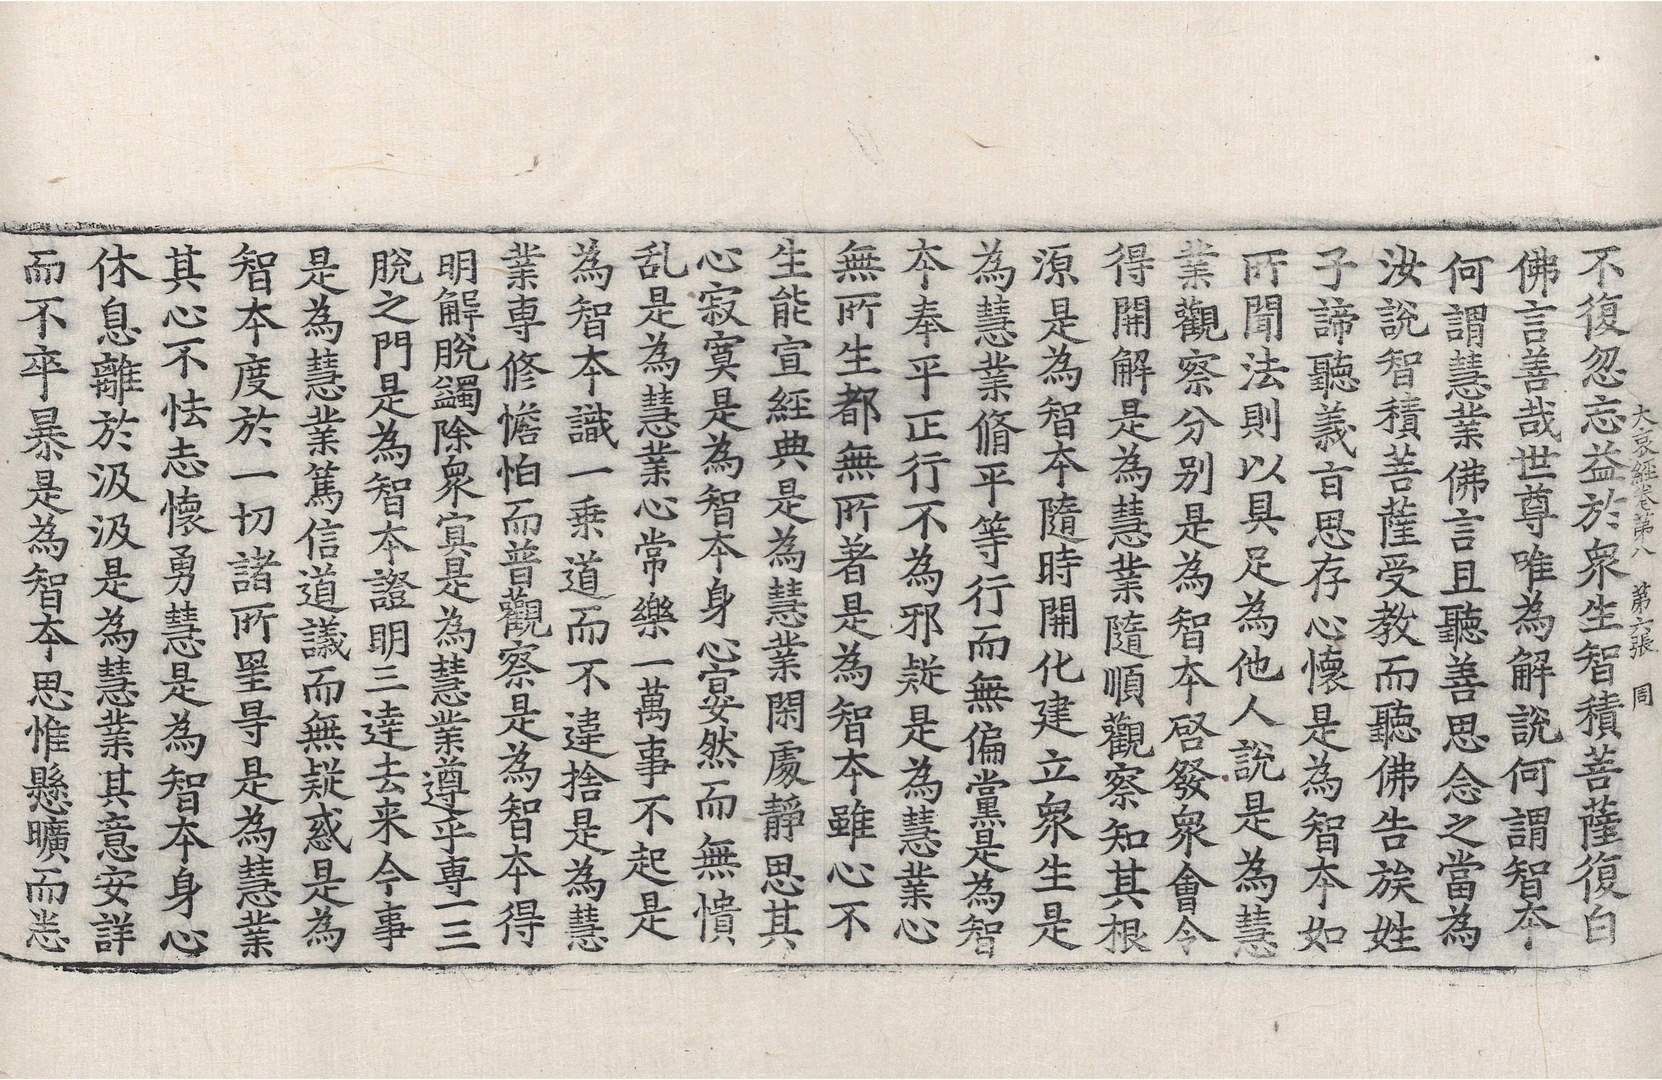 大哀經卷第八 第六張 周
不復忽忘益於衆生智積菩薩復白
佛言善哉世尊唯為解說何謂智本
何謂慧業佛言且聽善思念之當為
汝說智積菩薩受教而聽佛告族姓
子諦聽義言思存心懷是為智本如
所聞法則以具足為他人說是為慧
業觀察分別是為智本啓發衆會令
得開解是為慧業隨順觀察知其根
源是為智本隨時開化建立衆生是
為慧業脩平等行而無偏黨是為智
本奉平正行不為邪疑是為慧業心
無所生都無所著是為智本雖心不
生能宣經典是為慧業閑處靜思其
心寂寞是為智本身心宴然而無憒
乱是為慧業心常樂一萬事不起是
為智本識一乗道而不違捨是為慧
業專修憺怕而普觀察是為智本得
明解脫蠲除衆冥是為慧業遵乎専一三
脫之門是為智本證明三達去来今事
是為慧業篤信道議而無疑惑是為
智本度於一切諸所罣㝵是為慧業
其心不怯志懷勇慧是為智本身心
休息離於汲汲是為慧業其意安詳
而不卒暴是為智本思惟懸曠而悉